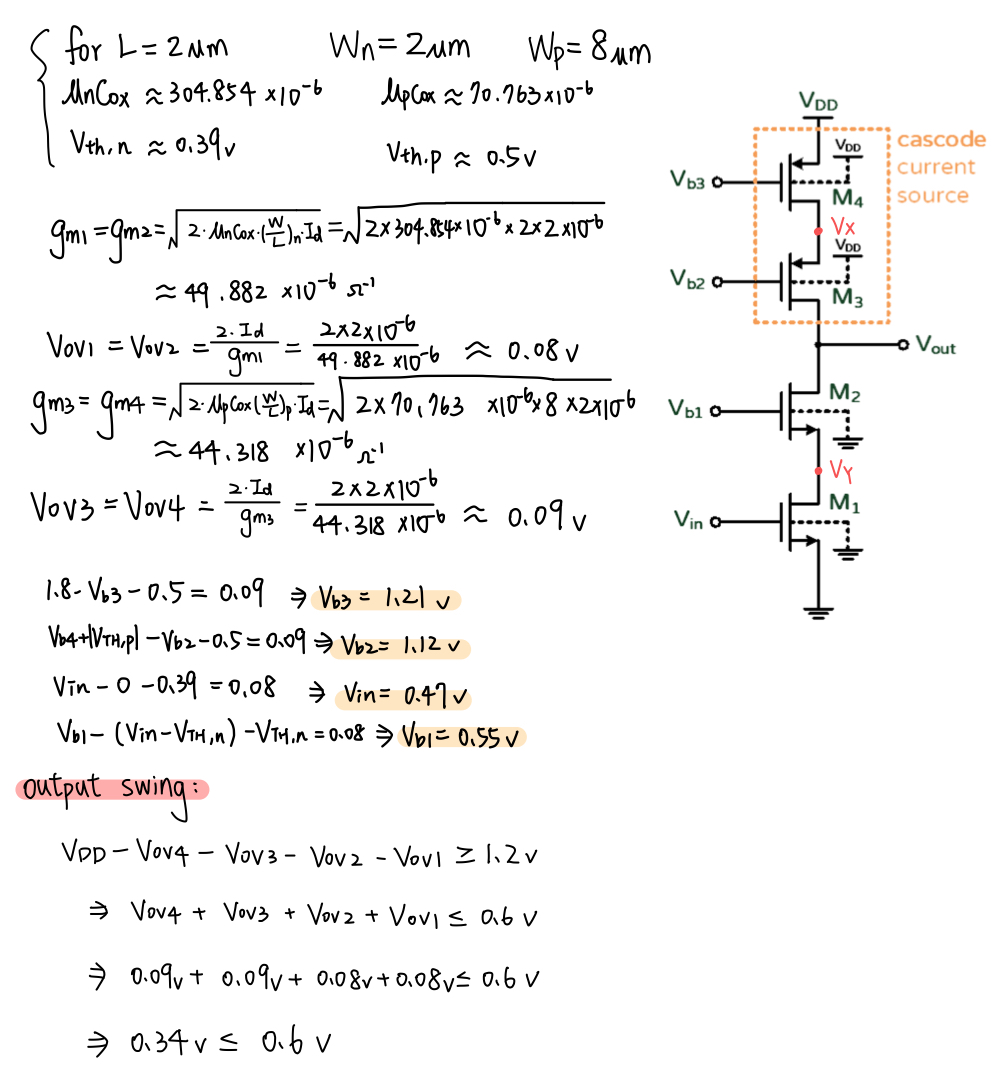 for L = 2μm Wn = 2μm Wp = 8μm
μnCox ≈ 304.854 ×10⁻⁶ μpCox ≈ 70.763×10⁻⁶
Vth,n ≈ 0.39v Vth,p ≈ 0.5v
gm1 = gm2 = √(2·μnCox·(W/L)n·Id) = √(2×304.854×10⁻⁶×2×2×10⁻⁶)
≈ 49.882 ×10⁻⁶ Ω⁻¹
Vov1 = Vov2 = 2·Id/gm1 = 2×2×10⁻⁶/49.882 ×10⁻⁶ ≈ 0.08 v
gm3 = gm4 = √(2·μpCox(W/L)p·Id) = √(2×70.763 ×10⁻⁶×8×2×10⁻⁶)
≈ 44.318 ×10⁻⁶ Ω⁻¹
Vov3 = Vov4 = 2·Id/gm3 = 2×2×10⁻⁶/44.318 ×10⁻⁶ ≈ 0.09 v
1.8-Vb3-0.5 = 0.09 ⇒ Vb3 = 1.21 v
Vb4+|VTH,p|-Vb2-0.5=0.09 ⇒ Vb2= 1.12 v
Vin - 0 - 0.39 = 0.08 ⇒ Vin = 0.47 v
Vb1 - (Vin-VTH,n) -VTH,n = 0.08 ⇒ Vb1= 0.55 v
output swing:
VDD - Vov4 - Vov3 - Vov2 - Vov1 ≥ 1.2v
⇒ Vov4 + Vov3 + Vov2 + Vov1 ≤ 0.6 v
⇒ 0.09v + 0.09v + 0.08v + 0.08v ≤ 0.6 v
⇒ 0.34 v ≤ 0.6 v
VDD
cascode
current
source
VDD
Vb3
M4
VX
VDD
Vb2
M3
Vout
M2
Vb1
VY
M1
Vin